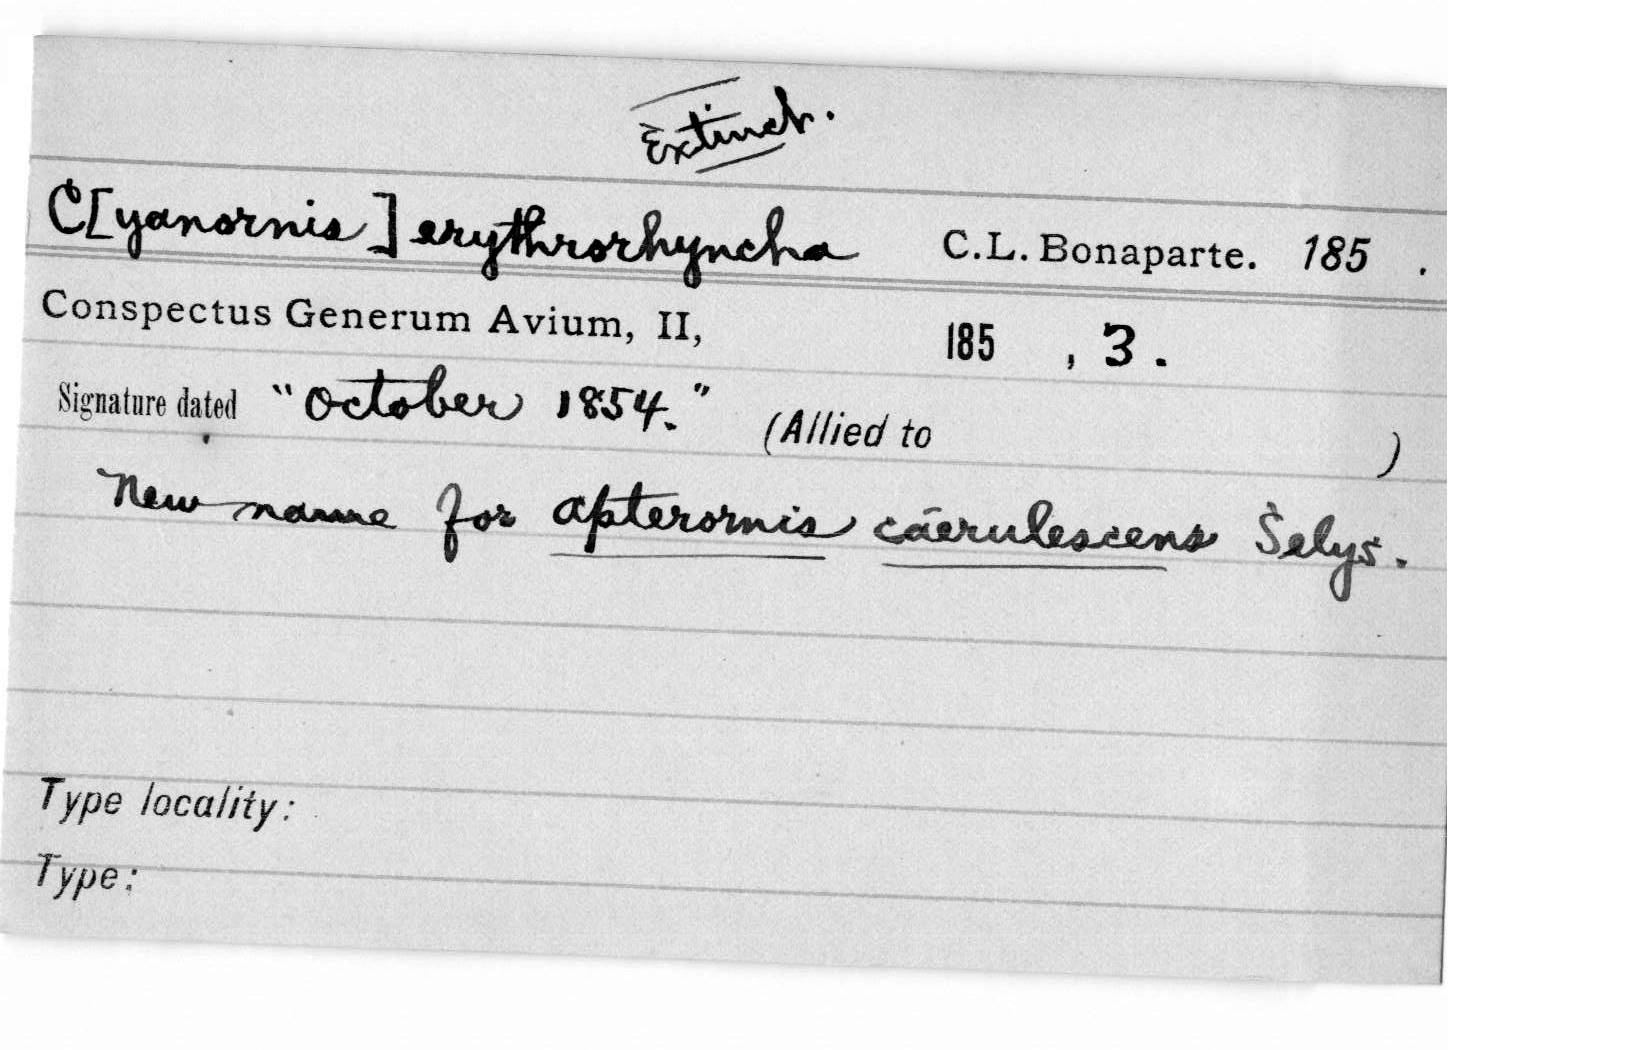 Extinct.
C[yanornis] erythrorhyncha C.L. Bonaparte. 185 .
Conspectus Generum Avium, II, 185 , 3.
Signature dated "October 1854." (Allied to )
New name for Apterornis cáerulescens Selys.
Type locality:
Type: